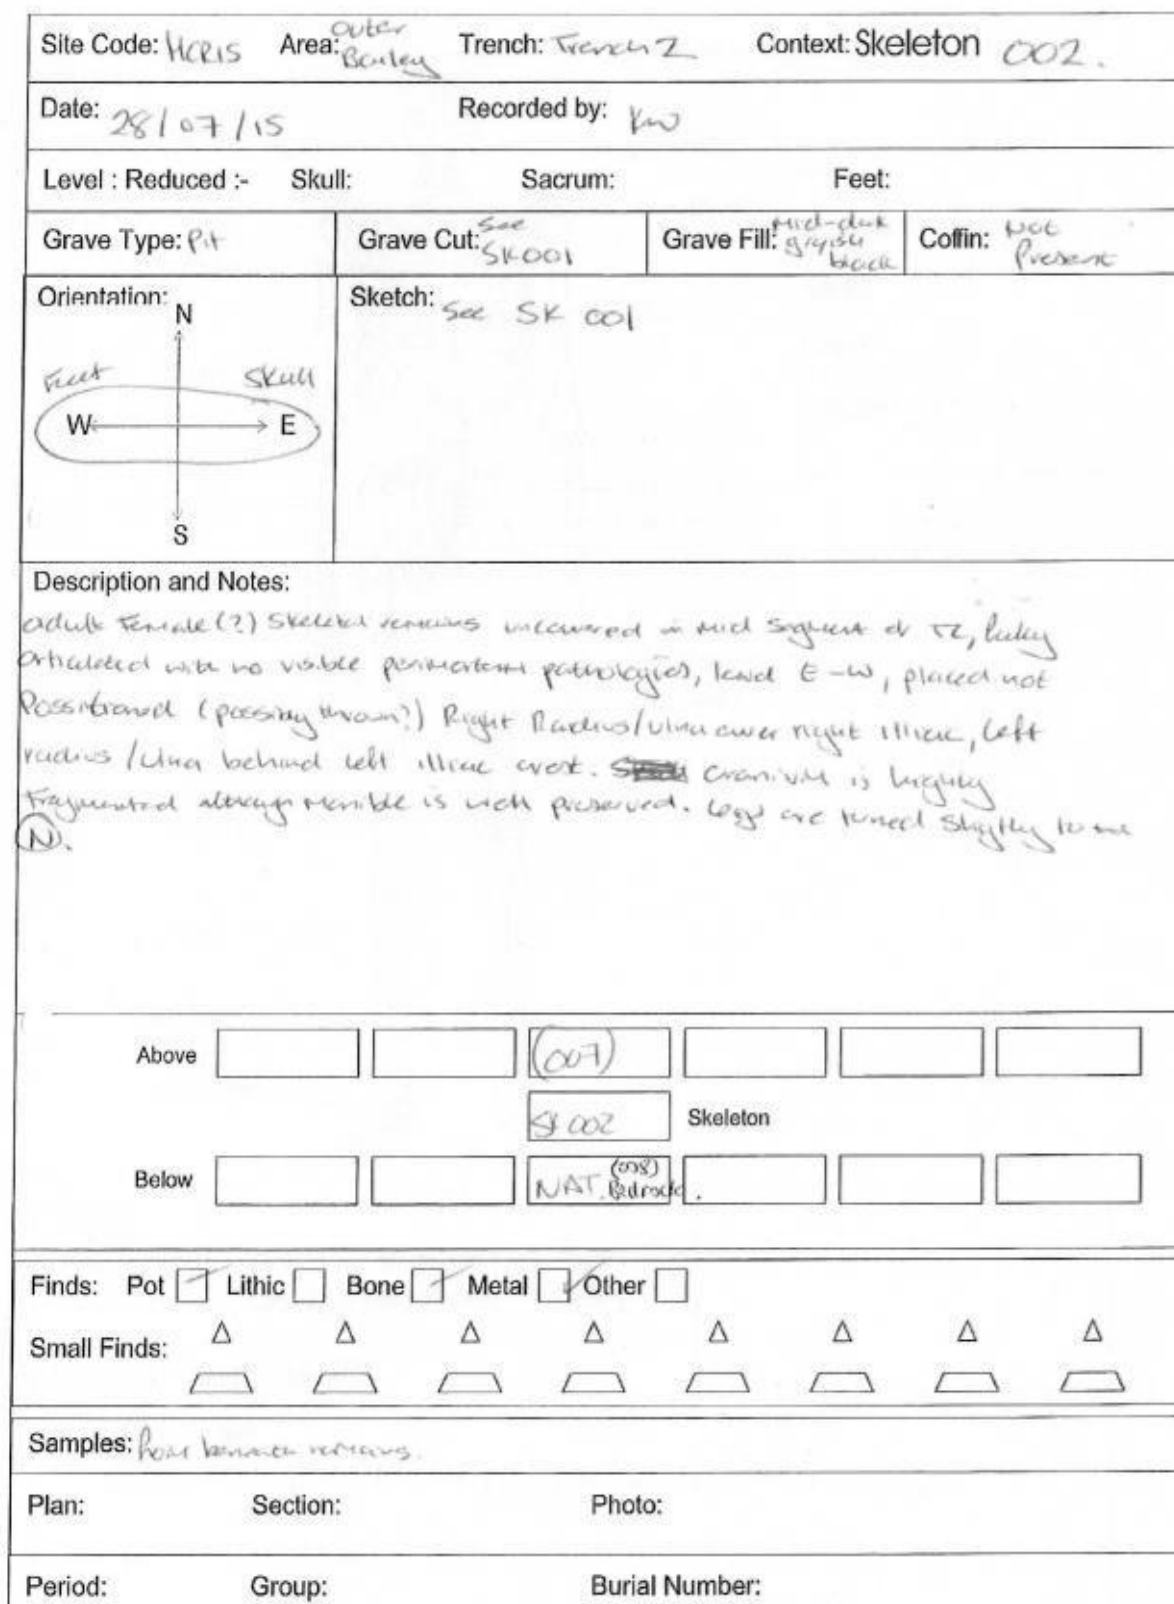 Site Code: HCR15 Area: Outer Bailey Trench: Trench 2 Context: Skeleton 002.
Date: 28/07/15 Recorded by: KW
Level : Reduced :- Skull: Sacrum: Feet:
Grave Type: Pit Grave Cut: See SK001 Grave Fill: Mid-dark greyish black Coffin: Not Present
Orientation: Sketch: See SK 001
N
Feet Skull
W E
S
Description and Notes:
adult Female (?) Skeletal remains uncovered in mid segment of T2, fully
articulated with no visible perimortem pathologies, laid E-W, placed not
Possitioned (possibly thrown?) Right Radius/Ulna over right illiac, left
radius/Ulna behind left illiac crest. Cranium is highly
Fragmented although is well preserved. Legs are turned slightly to the
N.
Above (007)
SK 002 Skeleton
Below NAT. (008) Bedrock.
Finds: Pot Lithic Bone Metal Other
Small Finds:
Samples: from beneath remains.
Plan: Section: Photo:
Period: Group: Burial Number: